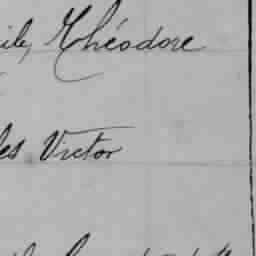 ile, Théodore
les Victor